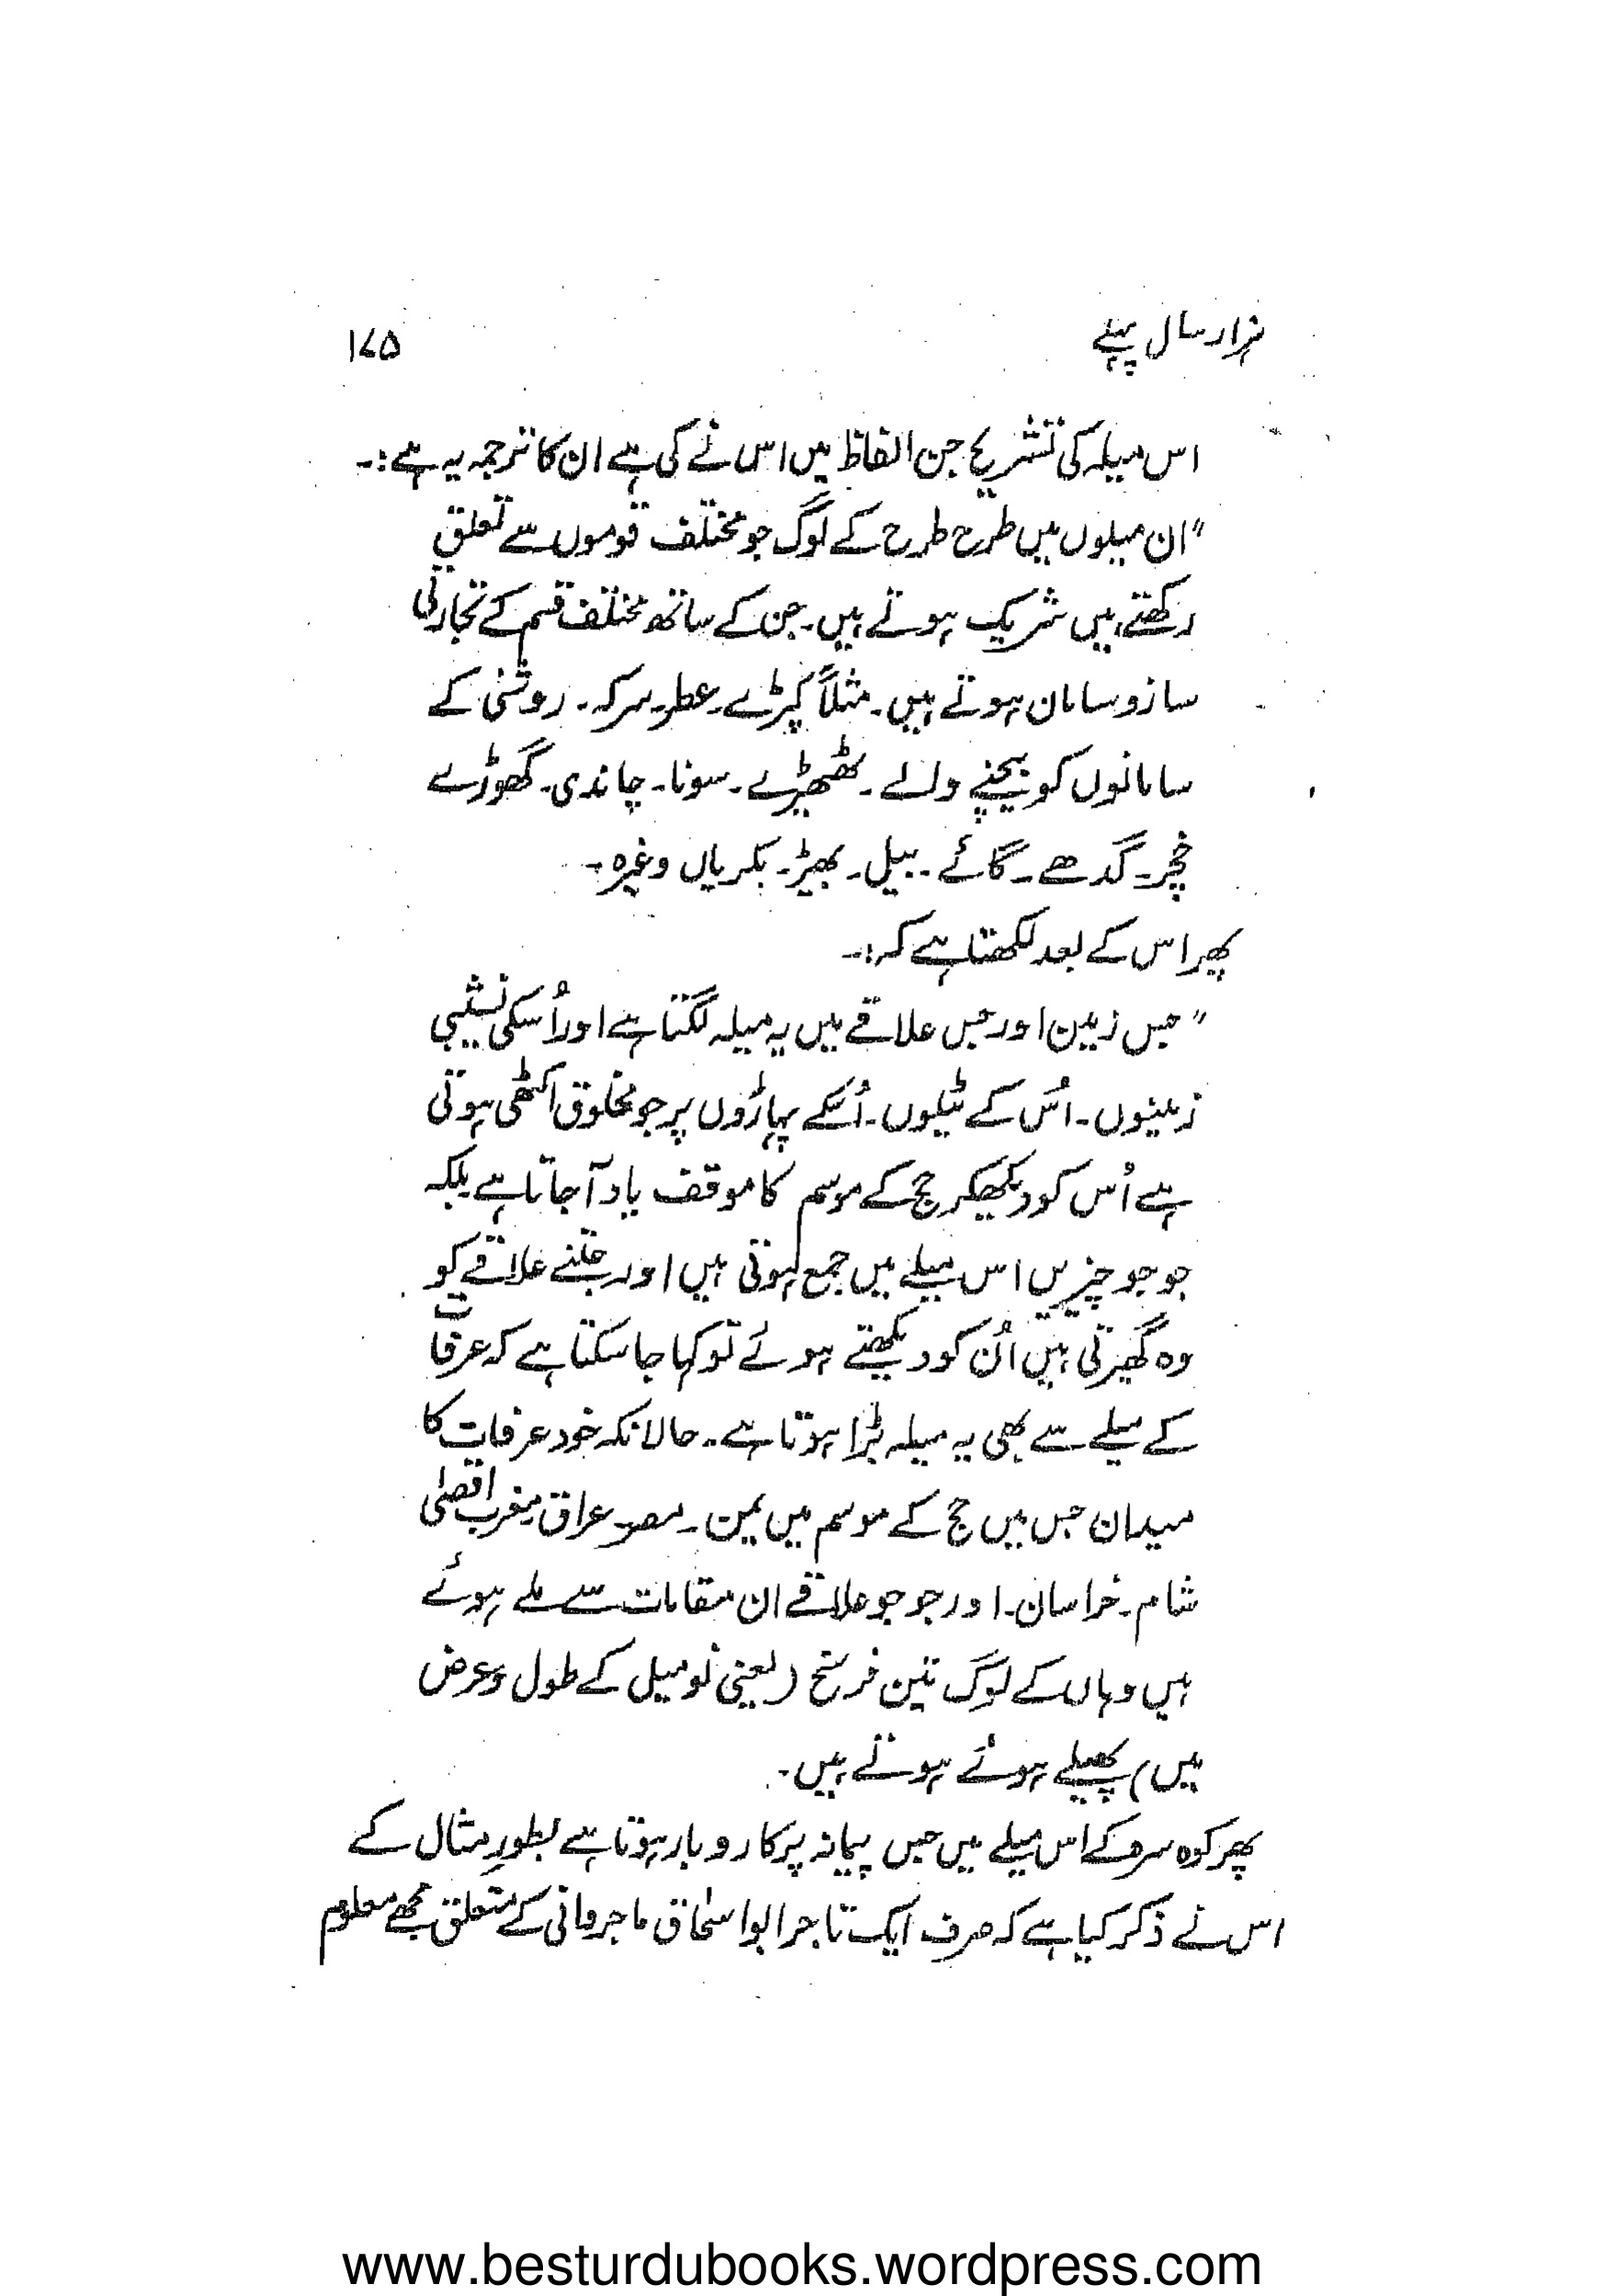 ہزار سال پہلے ۱۷۵
اس میلہ کی تشریح جن الفاظ میں اس نے کی ہے ان کا ترجمہ یہ ہے :۔
"ان میلوں میں طرح طرح کے لوگ جو مختلف قوموں سے تعلق
رکھتے ہیں شریک ہوتے ہیں۔ جن کے ساتھ مختلف قسم کے تجارتی
سازوسامان ہوتے ہیں۔ مثلاً کپڑے۔ عطر۔ سرکہ۔ روشنی کے
سامانوں کو بیچنے والے۔ ٹھٹھیڑے۔ سونا۔ چاندی۔ گھوڑے
خچر۔ گدھے۔ گائے۔ بیل۔ بھیڑ۔ بکریاں وغیرہ۔
پھر اس کے بعد لکھتا ہے کہ :۔
"جس زمین اور جس علاقے میں یہ میلہ لگتا ہے اور اُسکی نشیبی
زمینوں۔ اُس کے ٹیلوں۔ اُسکے پہاڑوں پر جو مخلوق اکٹھی ہوتی
ہے اُس کو دیکھکر حج کے موسم کا موقف یاد آجاتا ہے بلکہ
جو جو چیزیں اس میلے میں جمع ہوتی ہیں اور جتنے علاقے کو
وہ گھیرتی ہیں اُن کو دیکھتے ہوئے تو کہا جاسکتا ہے کہ عرفات
کے میلے سے بھی یہ میلہ بڑا ہوتا ہے۔ حالانکہ خود عرفات کا
میدان جس میں حج کے موسم میں یمن۔ مصر۔ عراق۔ مغرب اقصیٰ
شام۔ خراسان۔ اور جو جو علاقے ان مقامات سے ملے ہوئے
ہیں وہاں کے لوگ تین فرسخ (یعنی نو میل کے طول وعرض
میں) پھیلے ہوئے ہوتے ہیں۔
پھر کوہ سرو کے اس میلے میں جس پیمانہ پر کاروبار ہوتا ہے بطورِ مثال کے
اس نے ذکر کیا ہے کہ صرف ایک تاجر ابو اسحٰق ماجروانی کے متعلق مجھے معلوم
www.besturdubooks.wordpress.com